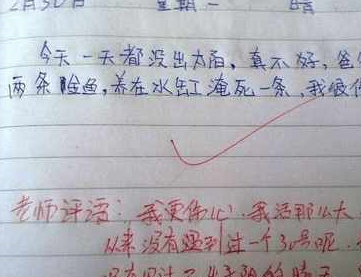 2月30日 星期一 晴
今天一天都没出太阳,真不好,爸
两条金鱼,养在水缸淹死一条,我很伤
老师评语:我更伤心.我活那么大
从来没有遇到过一个30号呢.
没有见过不出太阳的晴天